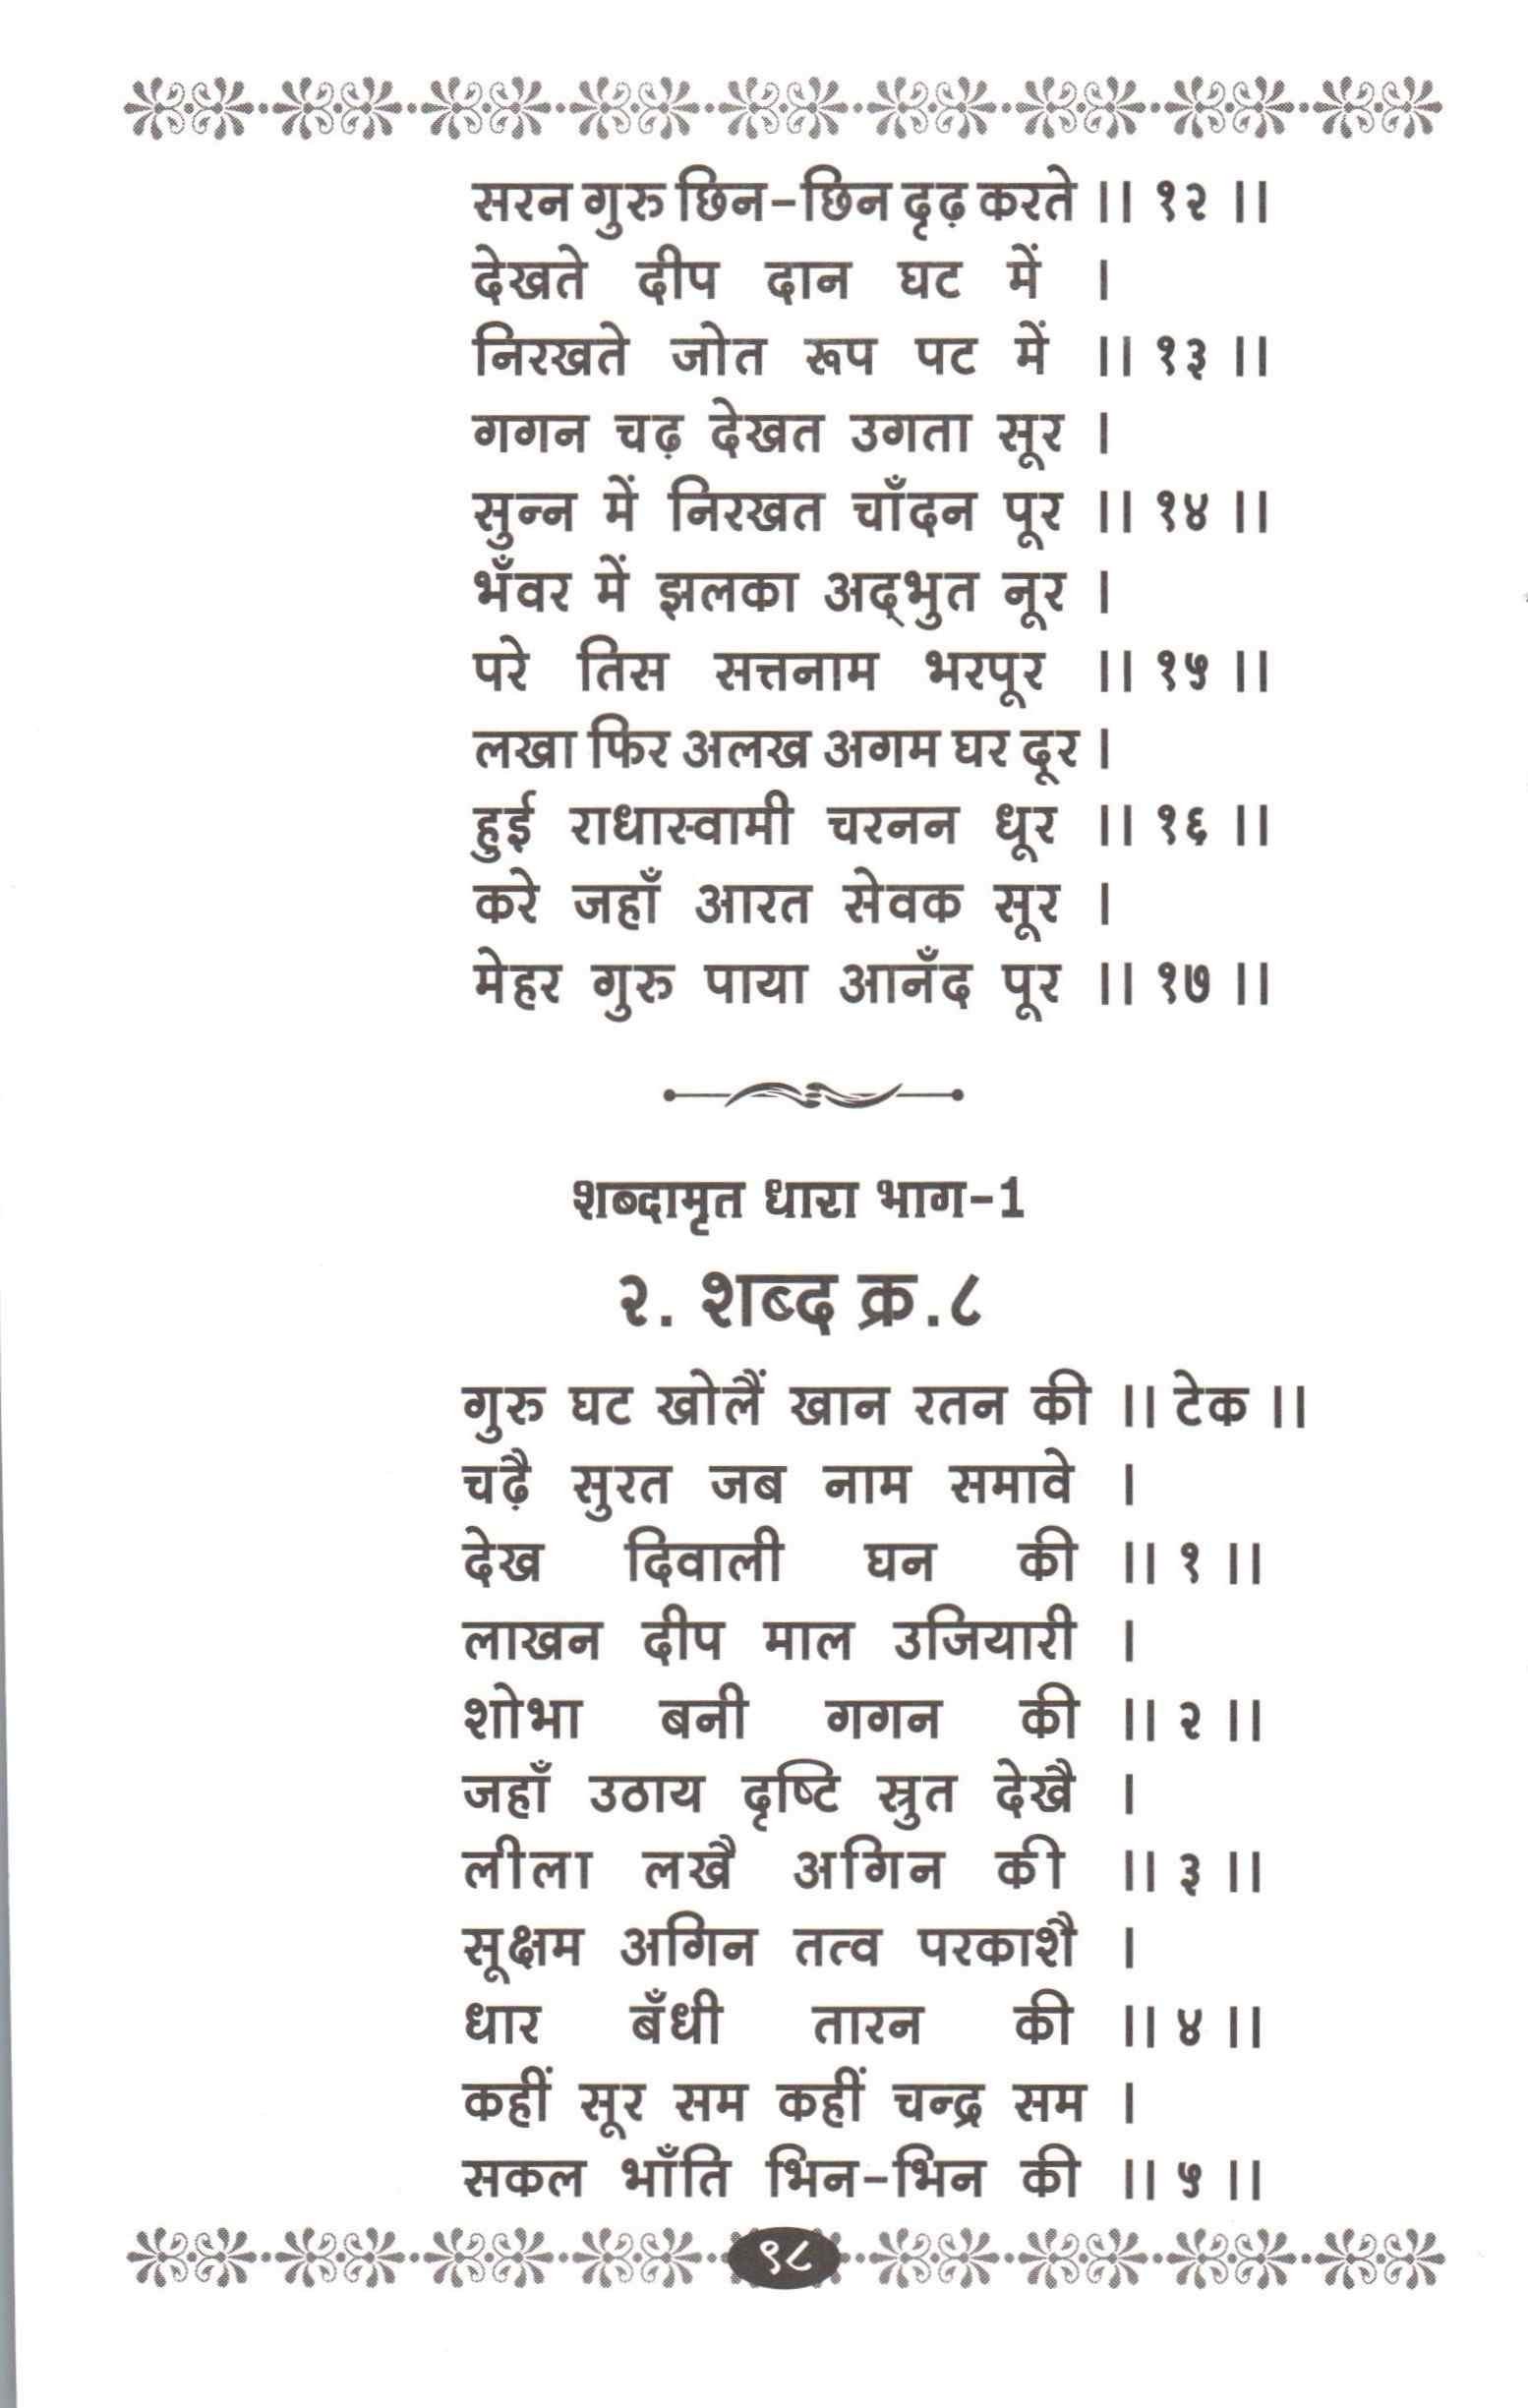 सरन गुरु छिन-छिन दृढ़ करते ।। १२ ।।
देखते दीप दान घट में ।
निरखते जोत रूप पट में ।। १३ ।।
गगन चढ़ देखत उगता सूर ।
सुन्न में निरखत चाँदन पूर ।। १४ ।।
भँवर में झलका अद्‌भुत नूर ।
परे तिस सत्तनाम भरपूर ।। १५ ।।
लखा फिर अलख अगम घर दूर ।
हुई राधास्वामी चरनन धूर ।। १६ ।।
करे जहाँ आरत सेवक सूर ।
मेहर गुरु पाया आनँद पूर ।। १७ ।।
शब्दामृत धारा भाग-1
२. शब्द क्र.८
गुरु घट खोलैं खान रतन की ।। टेक ।।
चढ़ै सुरत जब नाम समावे ।
देख दिवाली घन की ।। १ ।।
लाखन दीप माल उजियारी ।
शोभा बनी गगन की ।। २ ।।
जहाँ उठाय दृष्टि स्रुत देखै ।
लीला लखै अगिन की ।। ३ ।।
सूक्षम अगिन तत्व परकाशै ।
धार बँधी तारन की ।। ४ ।।
कहीं सूर सम कहीं चन्द्र सम ।
सकल भाँति भिन-भिन की ।। ५ ।।
९८